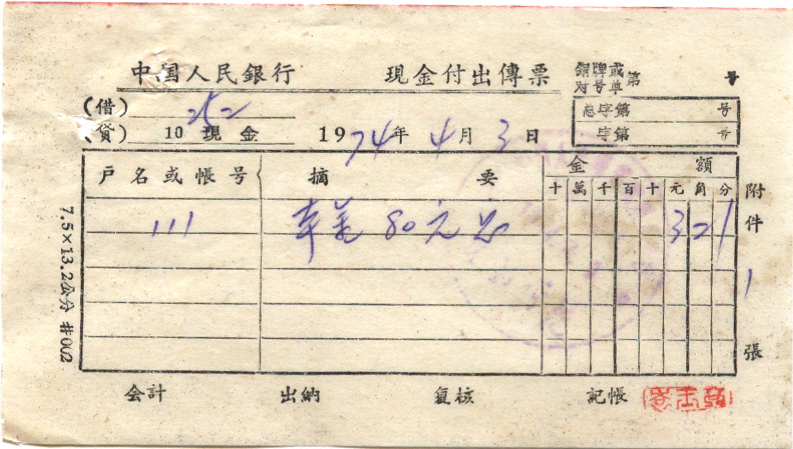 中国人民銀行 現金付出傳票 銅牌或对号单第 号
(借) 252
总字第 号
(贷) 10 現金 1974年4月3日
字第 号
戶名或帳号 摘要 金額
十萬千百十元角分
附件1張
111 80元 321
7.5×13.2公分 #002
会計 出納 复核 記帳